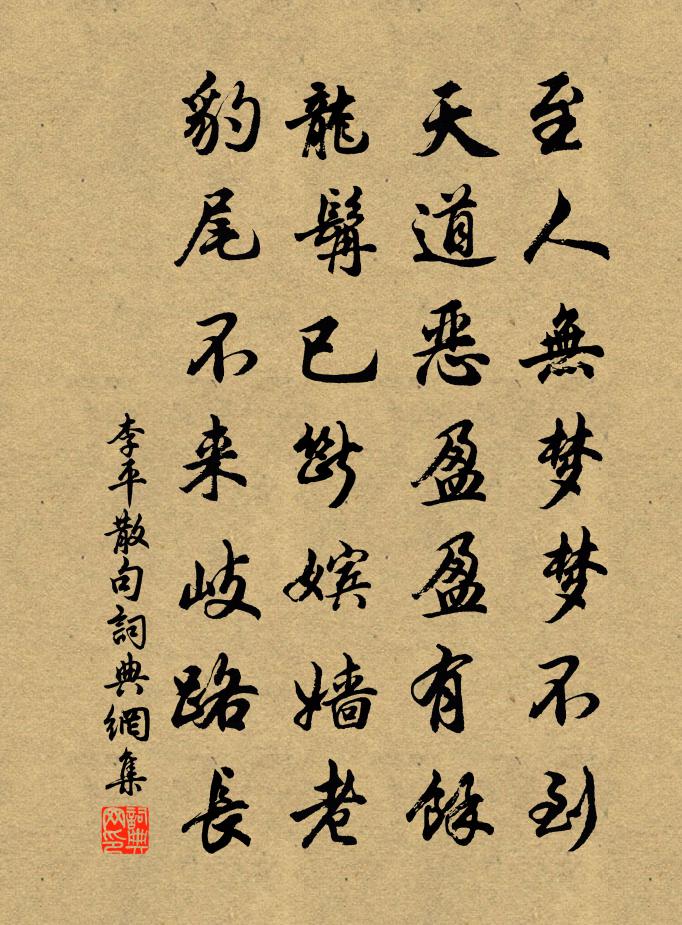 至人無梦梦不到
天道恶盈盈有餘
龍髯已斷嬪嬙老
豹尾不来岐路長
李平散句詞典網集
詞典网印